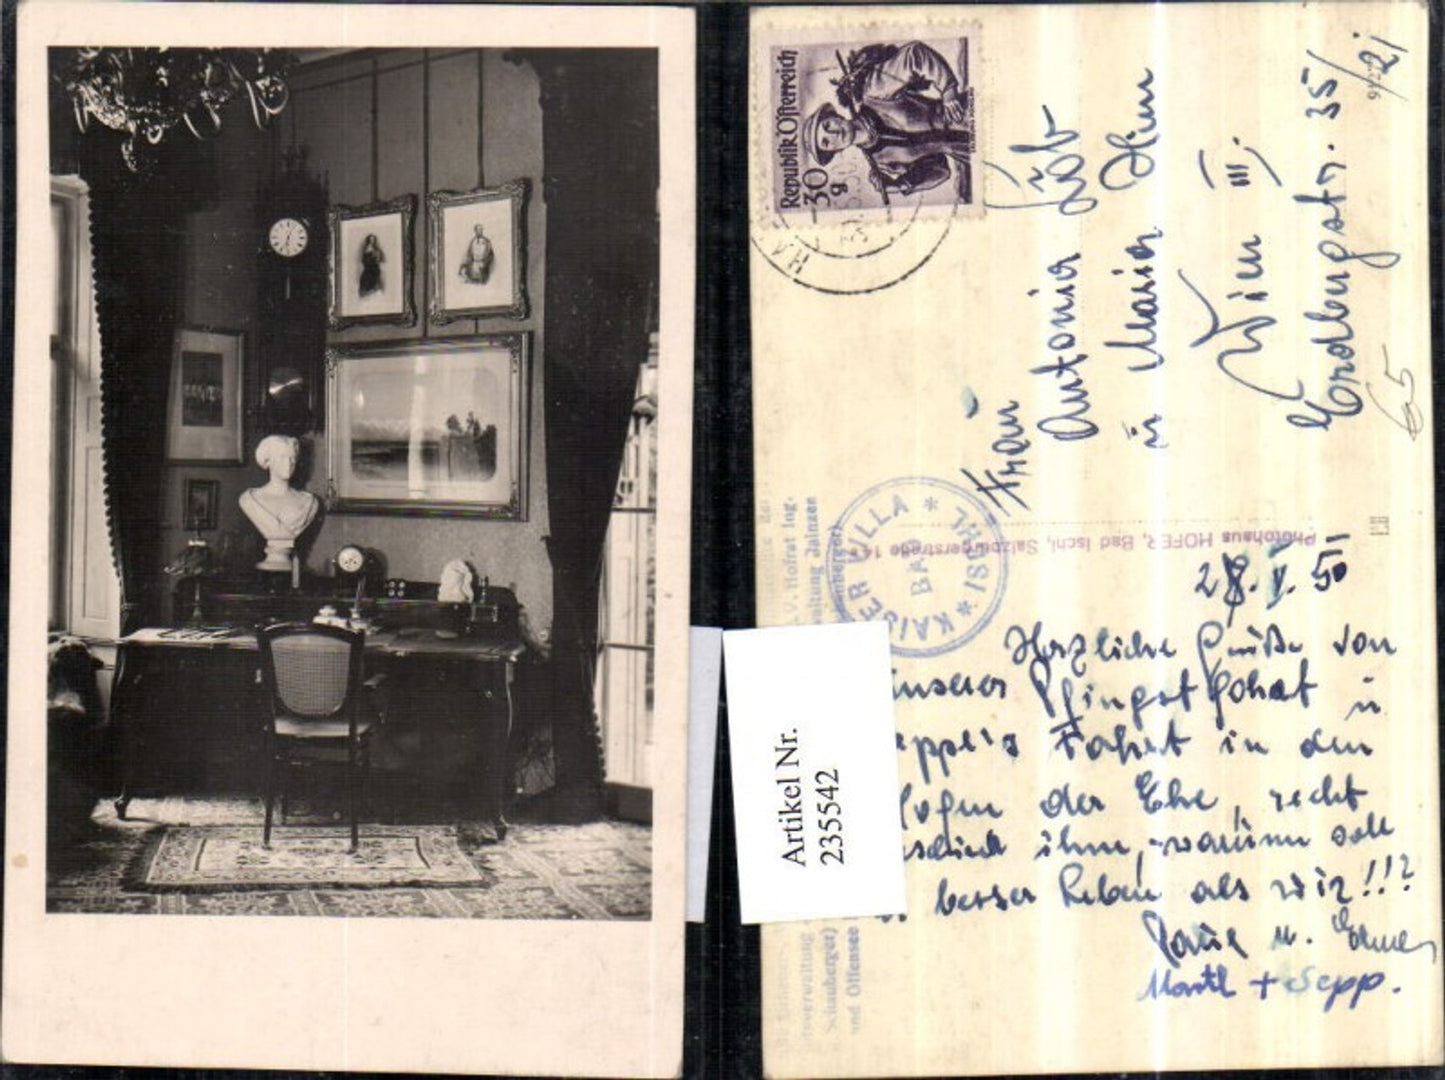 Republik Österreich
30
g
Frau
Antonia Löb
ü Maria
Wien III.
Erdbergstr. 35/
65
KAISER VILLA * BAD ISCHL *
Photohaus HOFER, Bad Ischl, Salzburgerstraße 1
V. Hofrat Ing.
waltung Jainzen
Schauberger)
und Offensee
28. V. 50
Herzliche Grüße von
unserer Pfingstfahrt ü
Fahrt in den
der Ehe, recht
ihm, warum soll
es besser haben als wir!!!?
ü.
+ Sepp.
Artikel Nr.
235542